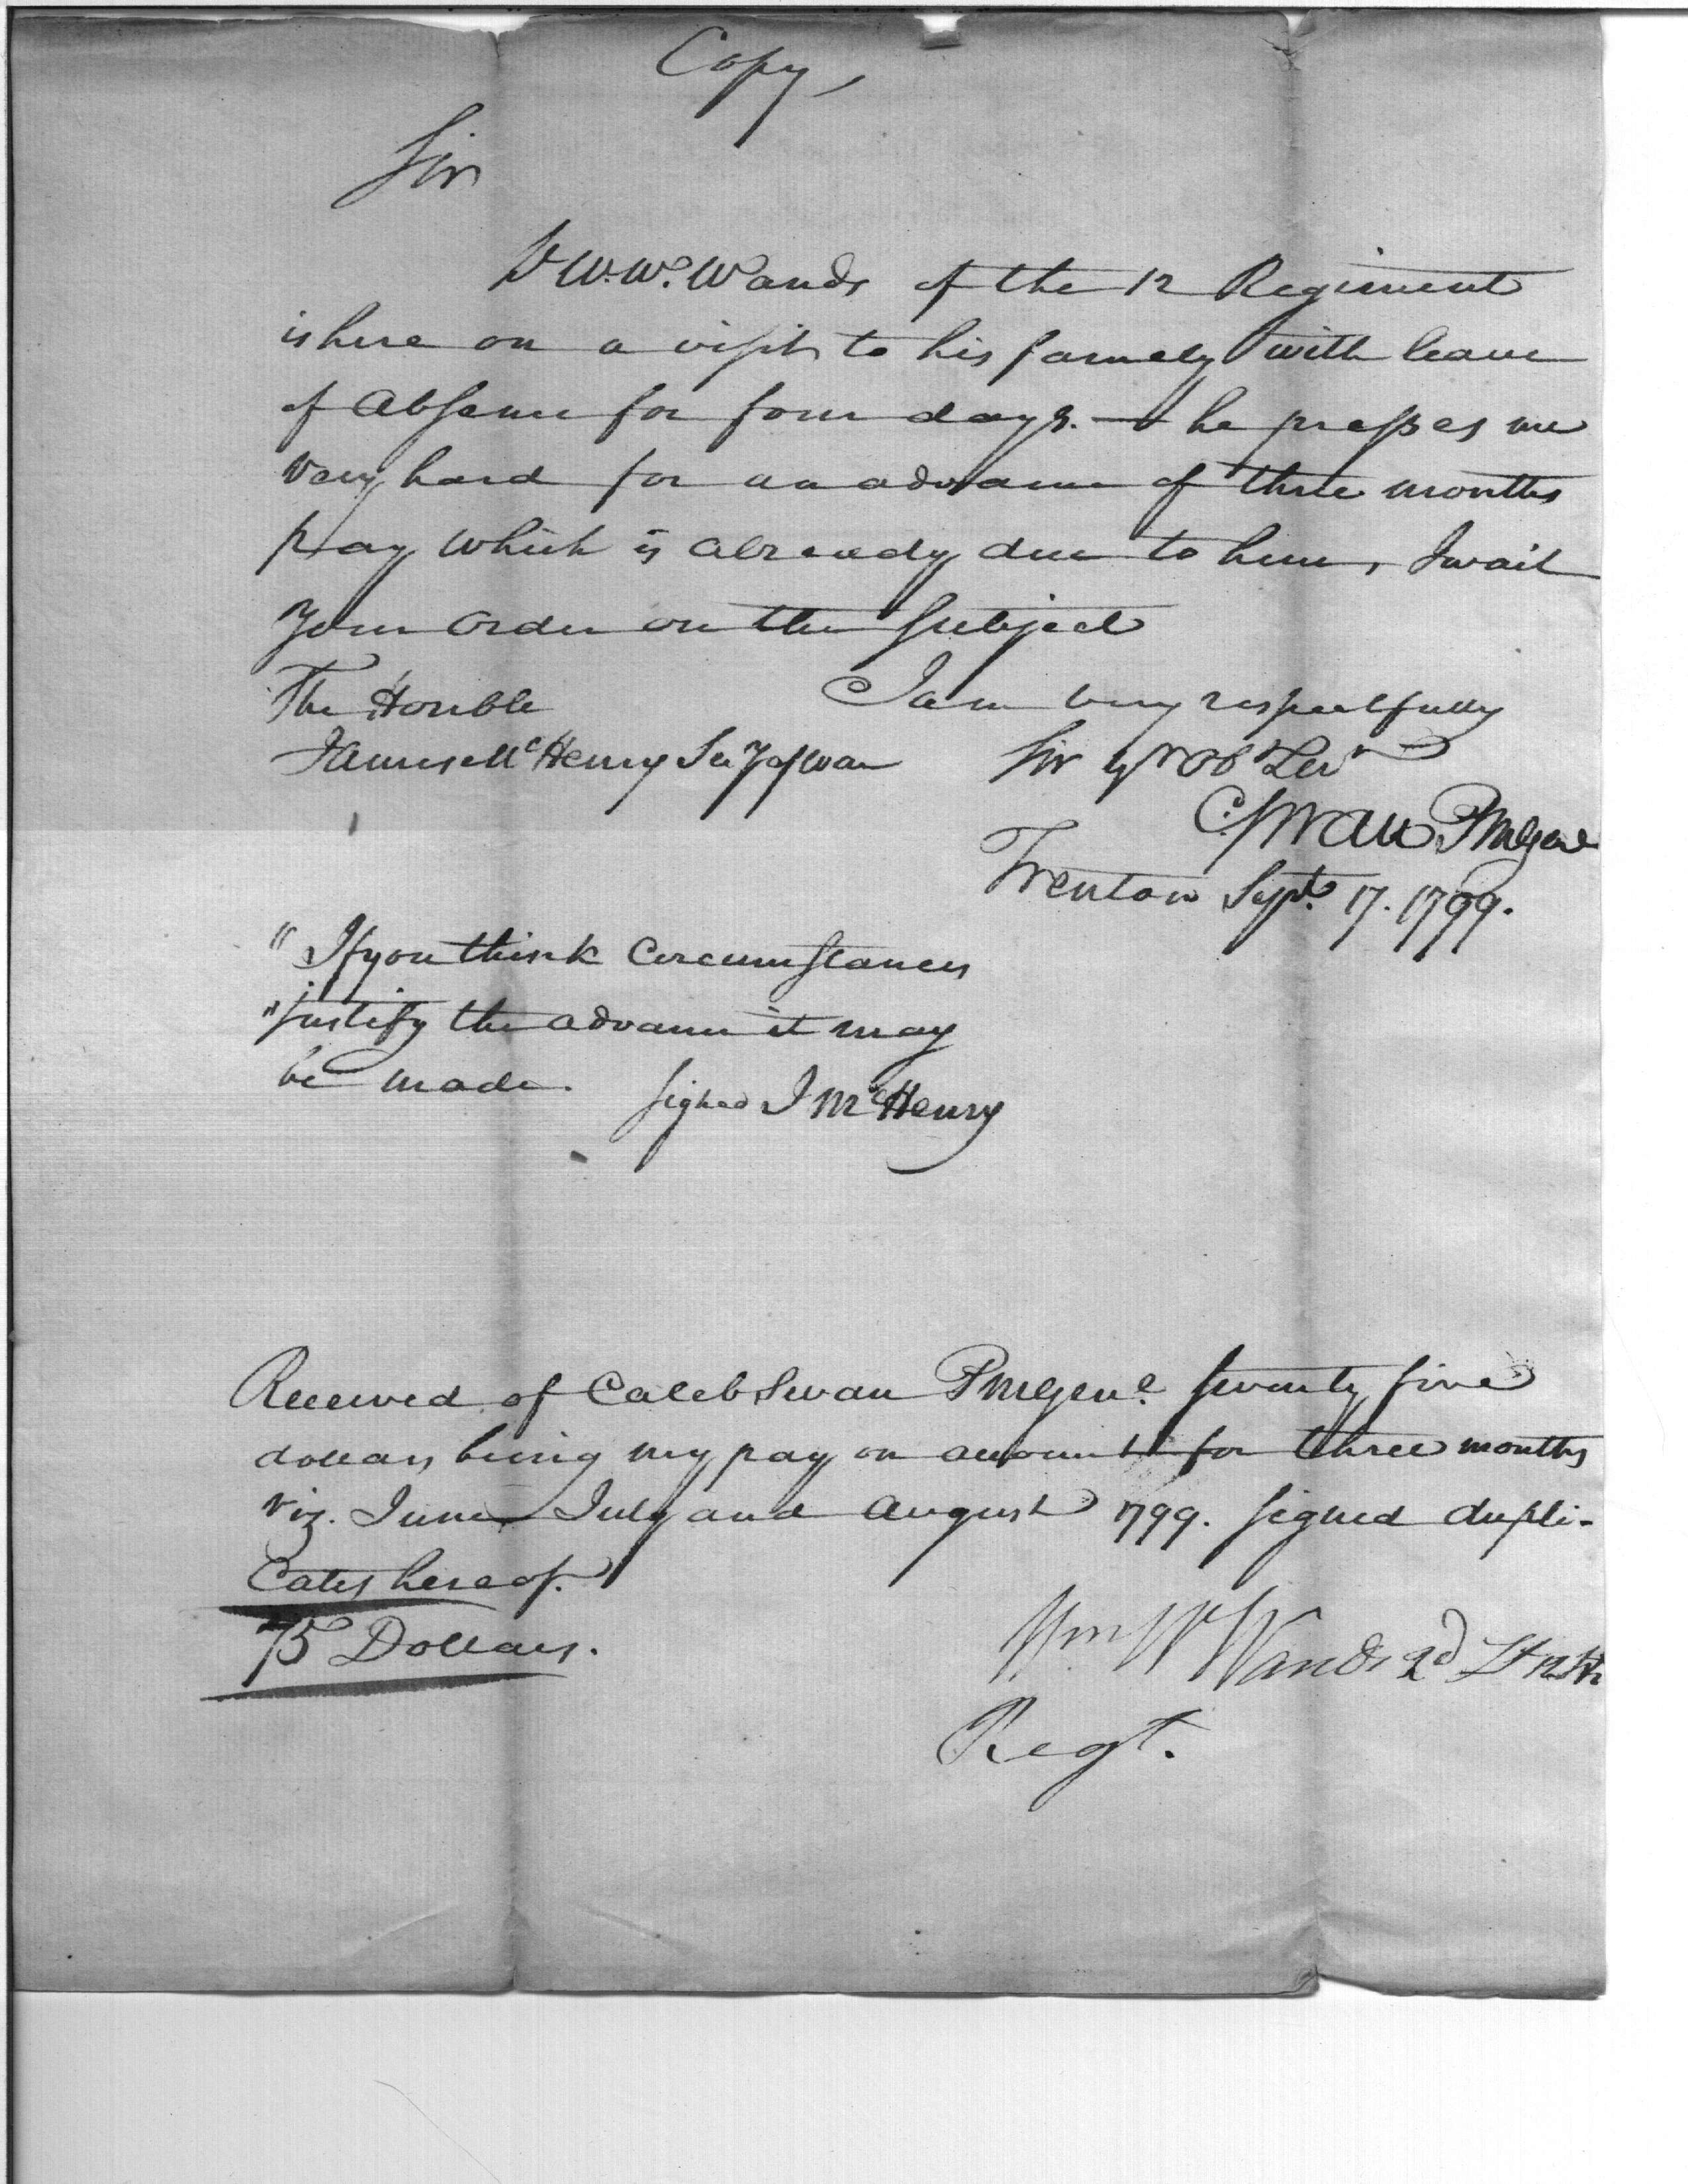 Copy,
Sir
Lt W. W. Wands of the 12 Regiment
is here on a visit to his famely with leave
of Absence for four days. — he presses me
very hard for an advance of three months
pay which is already due to him, I wait
your order on the subject
The Honble
James McHenry Secy of War
I am very respectfully
Sir yr Ob Ser
C. Swan PMGenl
Trenton Sept. 17. 1799.
"If you think Circumstances
"justify the advance it may
be made.
signed J McHenry
Received of Caleb Swan PMGenl. seventy five
dollars being my pay on account for three months
viz. June July and August 1799. signed dupli-
cates hereof.
75 Dollars.
Wm W Wands 2d Lt 12th
Regt.